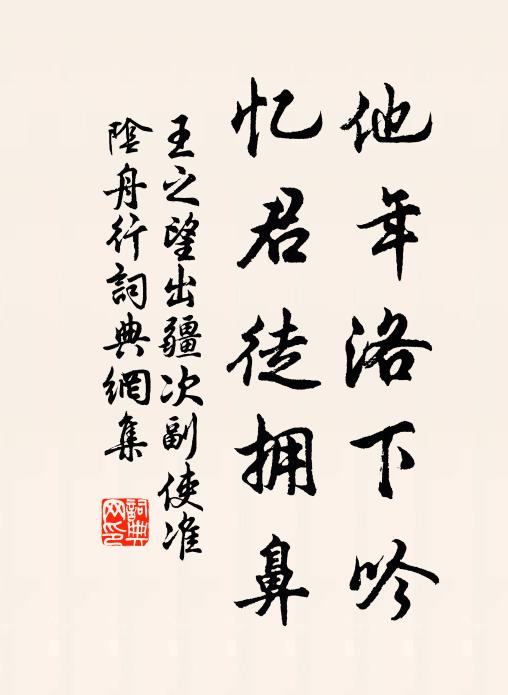 他年洛下吟
忆君徒拥鼻
王之望出疆次副使淮
陰舟行詞典網集
詞典
网印